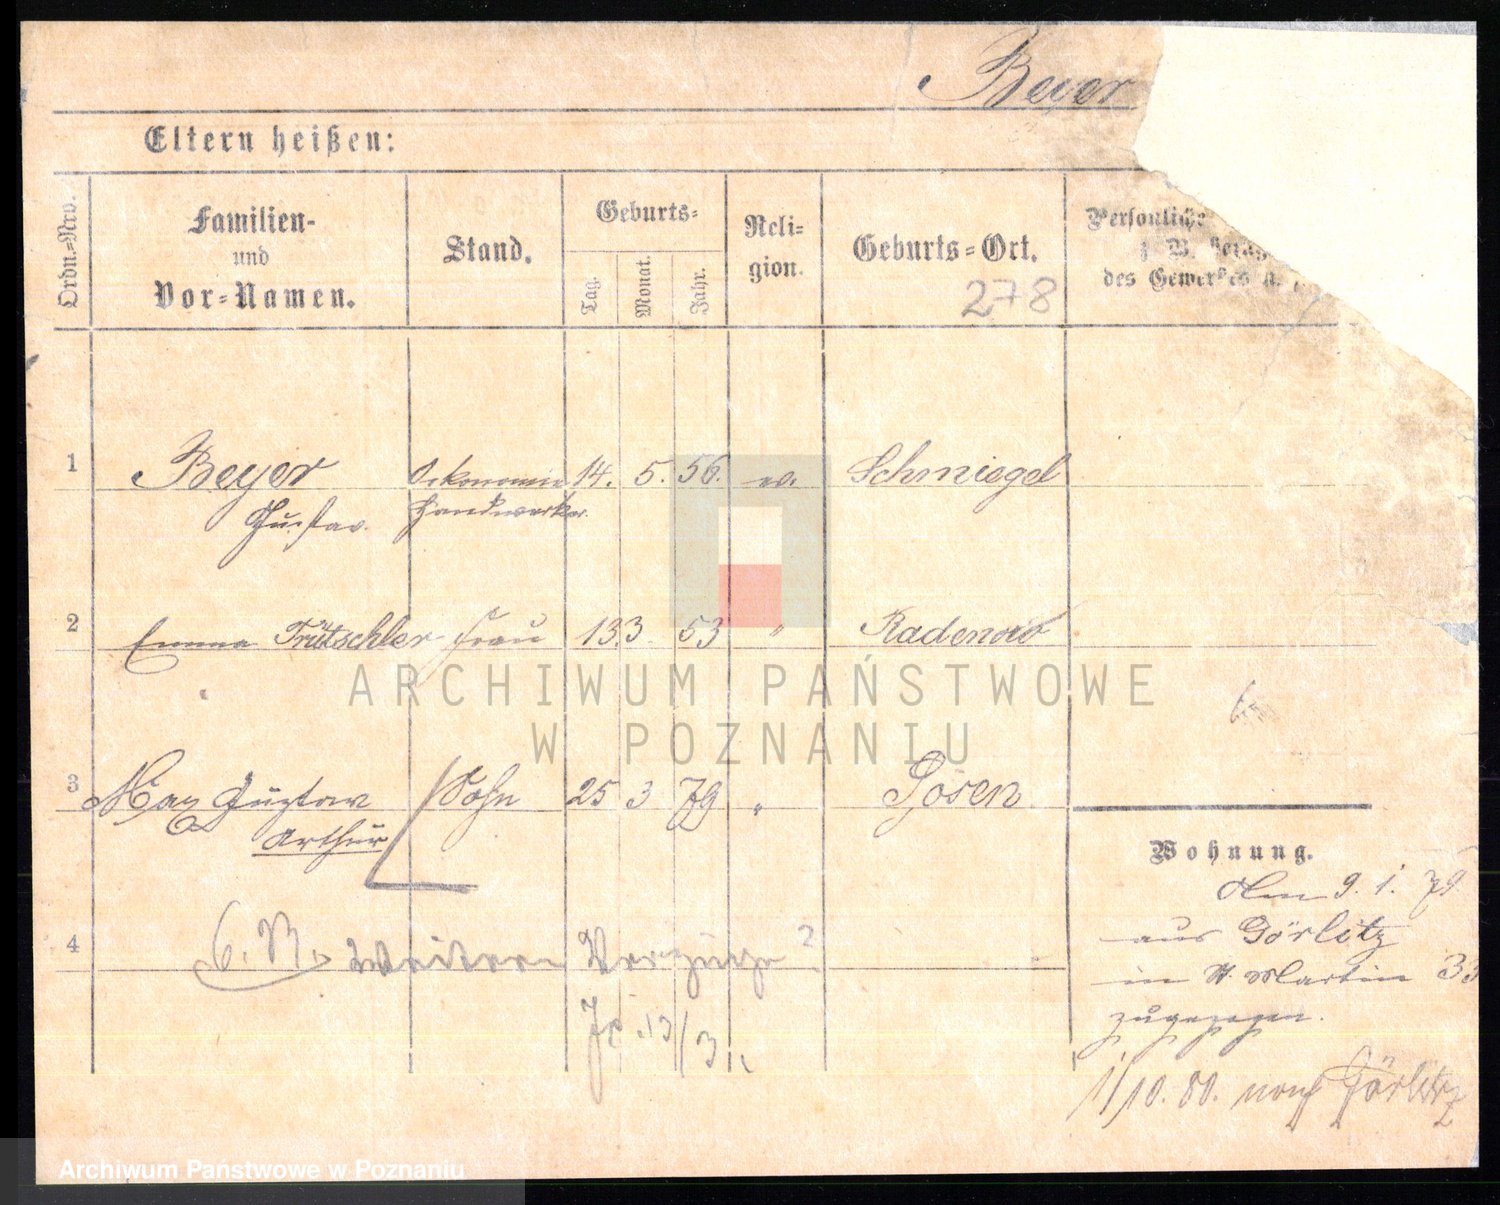 Beyer
Eltern heißen:
Ordn.=Nro.
Familien-
und
Vor=Namen.
Stand.
Geburts=
Tag.
Monat.
Jahr.
Reli=
gion.
Geburts=Ort.
278
Persönliche
z. B.
des Gewerbes u.
1 Beyer Oekonomie 14. 5. 56. ev. Schmiegel
Gustav. Handwerker.
2 Emma Trütschler Frau 13. 3. 53 " Radenow
3 Max Gustav Sohn 25 3 79 " Posen
Arthur
Wohnung.
Am 9. 1. 79.
aus Görlitz
in St. Martin 33
zugezogen.
4 weitere Verzüge ?
13/3
1/10. 80. nach Görlitz
ARCHIWUM PAŃSTWOWE
W POZNANIU
Archiwum Państwowe w Poznaniu